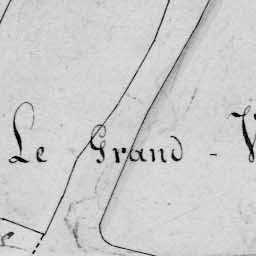 Le Grand - V